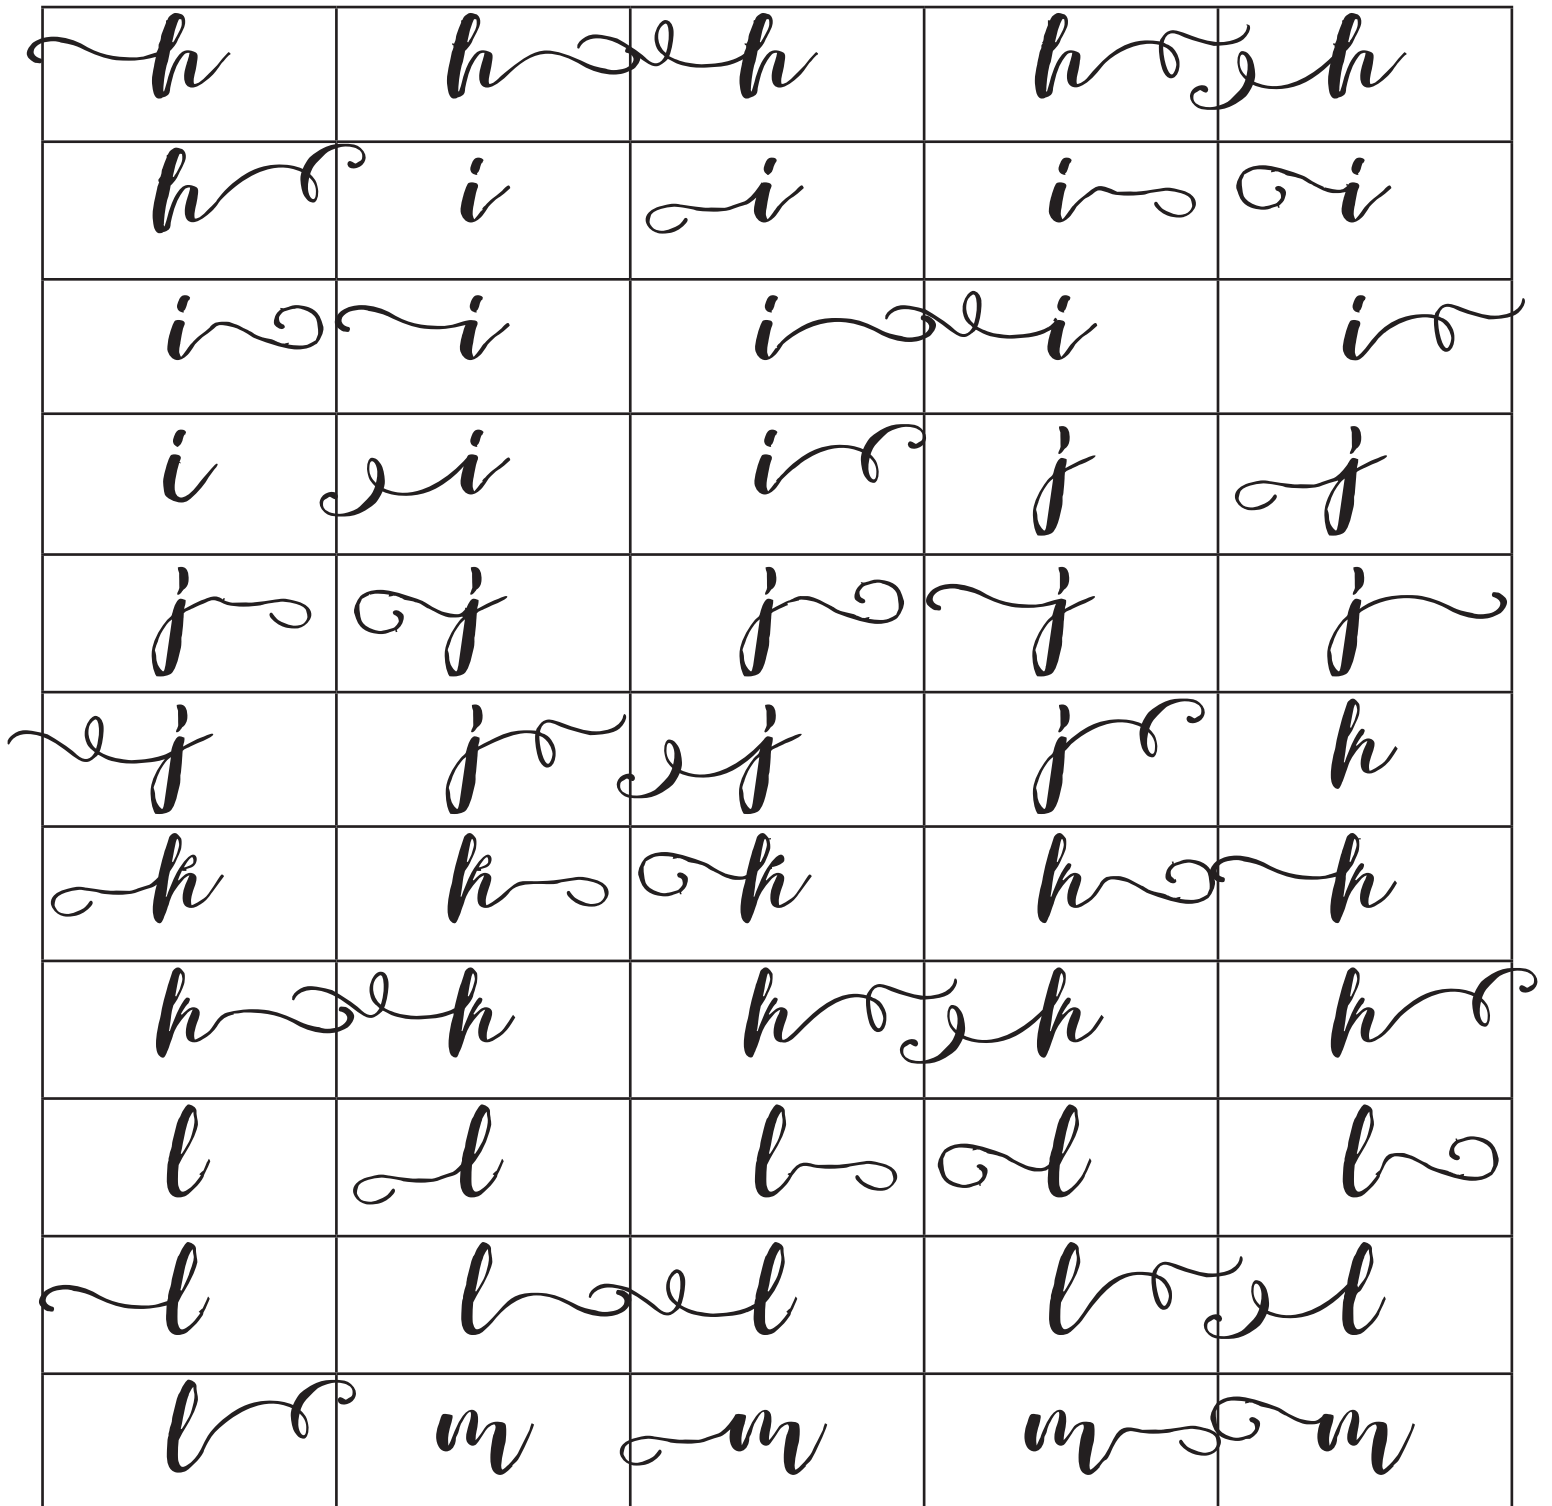 h h h h h
h i i i i
i i i i i
i i i j j
j j j j j
j j j j k
k k k k k
k k k k k
l l l l l
l l l l l
l m m m m